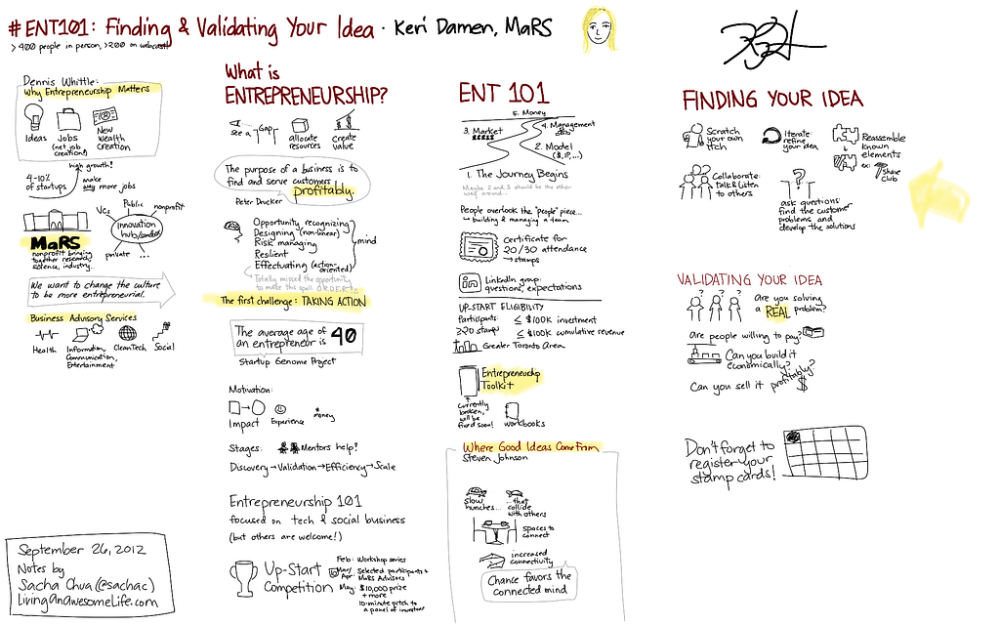 #ENT101: Finding & Validating Your Idea · Keri Damen, MaRS
>400 people in person, >200 on webcast!
Dennis Whittle:
Why Entrepreneurship Matters
Ideas
Jobs
(net job
creation!)
New
Wealth
Creation
high growth!
4-10%
of startups
make
way more jobs
MaRS
nonprofit bringing
together research,
science, industry...
VCs
Public
nonprofit
Innovation
private
...
We want to change the culture
to be more entrepreneurial.
Business Advisory Services
Health
Information,
Communication,
Entertainment
CleanTech
Social
September 26, 2012
Notes by
Sacha Chua (@sachac)
LivingAnAwesomeLife.com
What is
ENTREPRENEURSHIP?
see a
Gap
allocate
resources
create
value
The purpose of a business is to
find and serve customers
profitably.
Peter Drucker
Opportunity recognizing
Designing (non-linear)
Risk managing
Resilient
Effectuating (action-
oriented)
mind
Totally missed the opportunity
to make this spell O.R.D.E.R...
The first challenge: TAKING ACTION
The average age of
an entrepreneur is 40
Startup Genome Project
Motivation:
Impact
Experience
Money
Stages:
Mentors help!
Discovery→Validation→Efficiency→Scale
Entrepreneurship 101
focused on tech & social business
(but others are welcome!)
Up-Start
Competition
Feb: Workshop series
Mar/
Apr
Selected participants +
MaRS Advisors
May:
$10,000 prize
+ more
10-minute pitch to
a panel of investors
ENT 101
5. Money
4. Management
3. Market
2. Model
($, IP, ...)
1. The Journey Begins
Maybe 2 and 3 should be the other
way around...
People overlook the "people" piece...
↪ building & managing a team.
Certificate for
20/30 attendance
→ stamps
LinkedIn group:
questions, expectations
UP-START ELIGIBILITY
Participants:
≤ $100K investment
≥20 stamps
≤ $100K cumulative revenue
Greater Toronto Area
Entrepreneurship
Toolkit
currently
broken,
will be
fixed soon!
workbooks
Where Good Ideas Come From
Steven Johnson
slow
hunches...
...that
collide
with others
spaces to
connect
increased
connectivity
Chance favors the
connected mind
FINDING YOUR IDEA
Scratch
your own
itch
Iterate
refine
your idea
Reassemble
known
elements
ex:
Shoe
Club
Collaborate:
talk & listen
to others
?
ask questions
find the customer
problems and
develop the solutions
VALIDATING YOUR IDEA
? ? ?
Are you solving
a REAL problem?
Are people willing to pay?
Can you build it
economically?
Can you sell it profitably?
$
Don't forget to
register your
stamp cards!